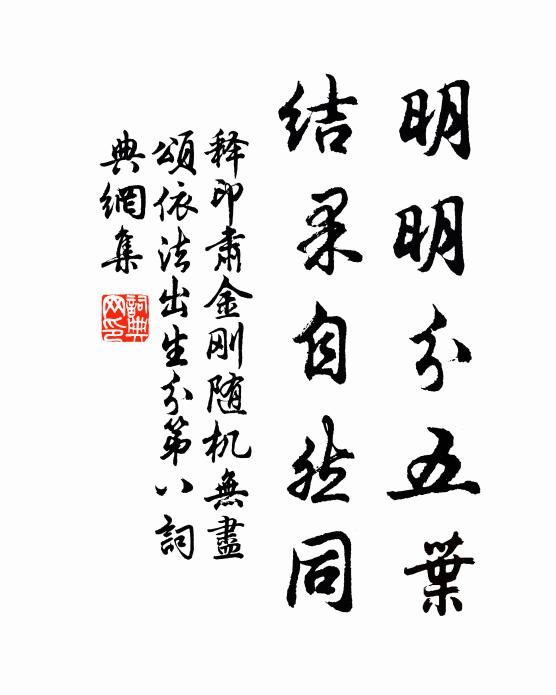 明明分五葉
结果自然同
释印肃金刚随机無盡
颂依法出生分第八詞
典網集
詞典网印